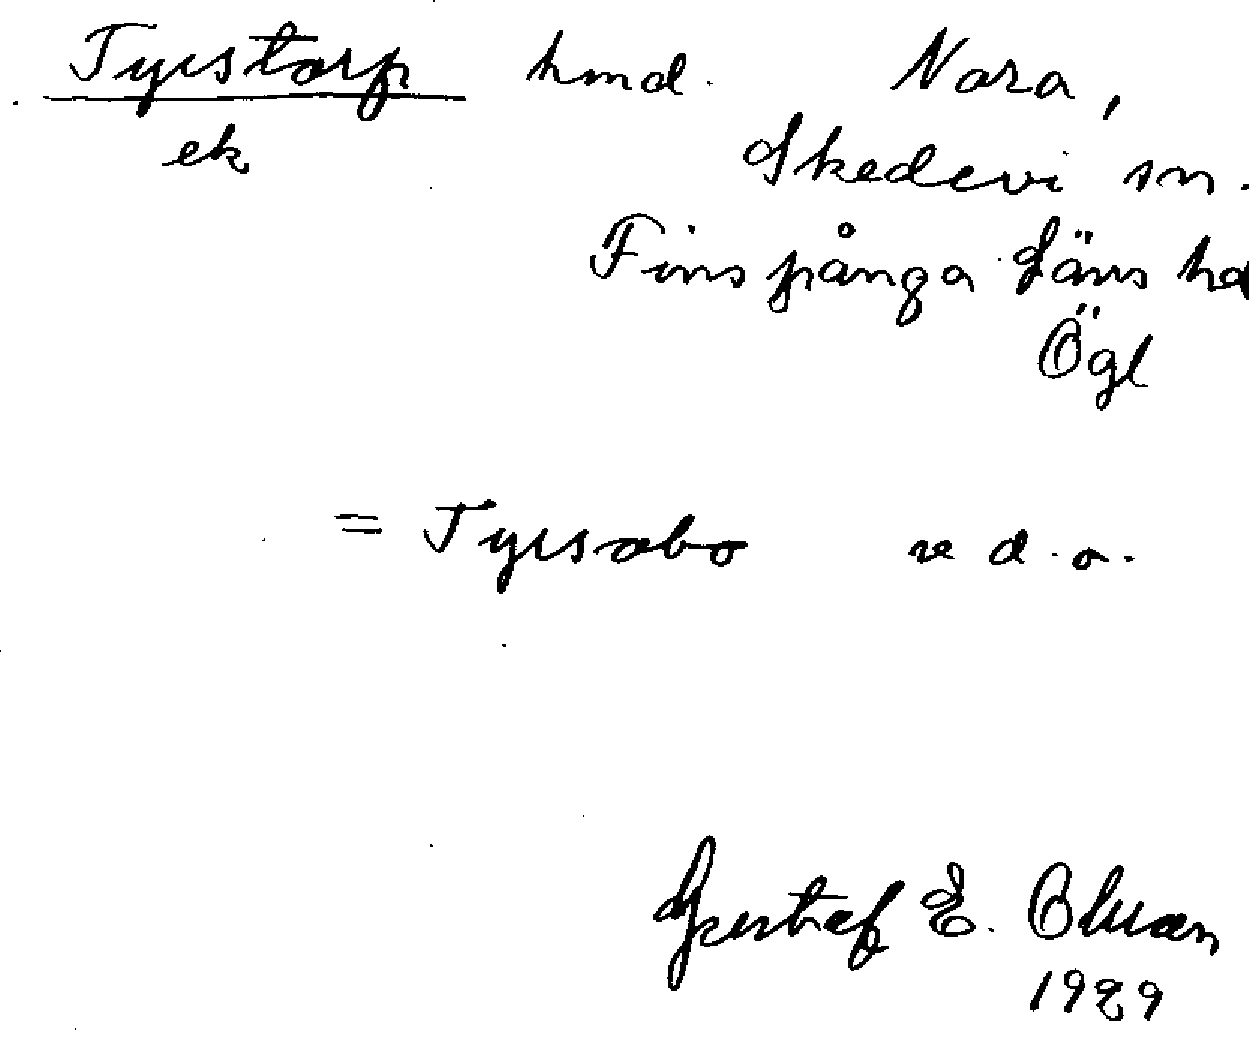 Tyrstorp hmd. Nora,
ek
Skedevi sn.
Finspånga Läns hd
Ögl
= Tyrsabo se d.o.
Gustaf E.
1929